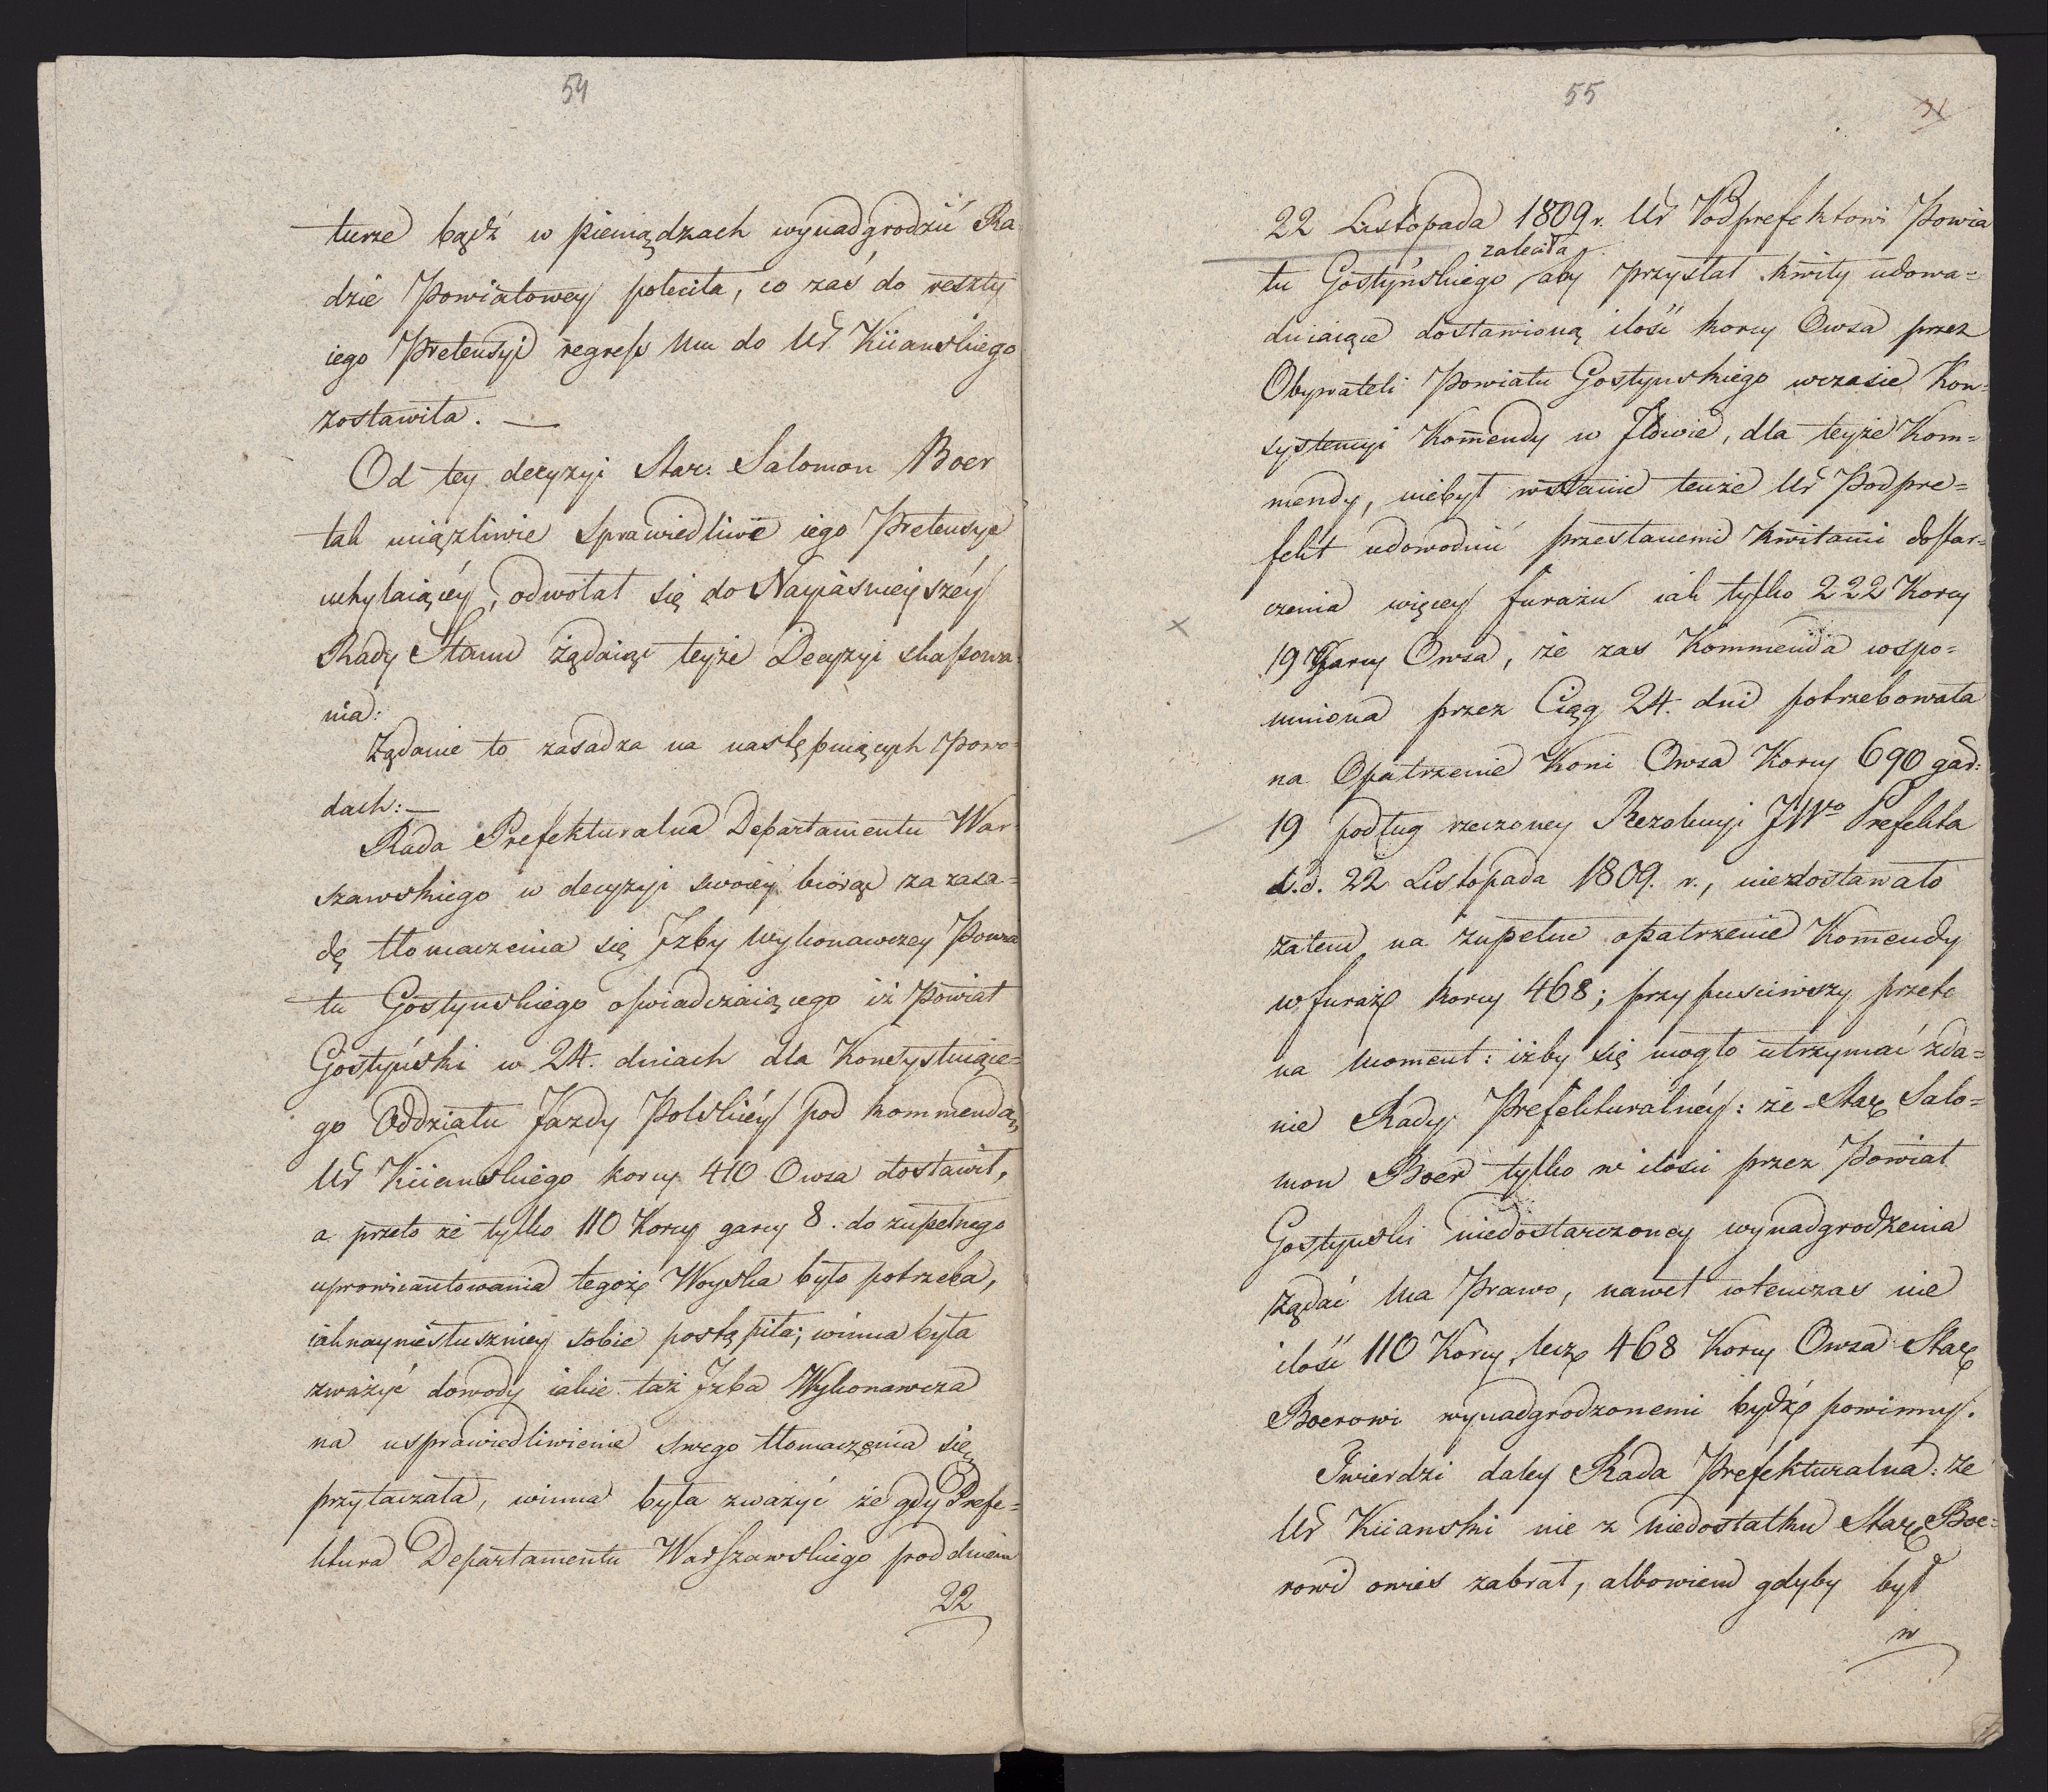 54
turze bądź w pieniądzach wynadgrodzić Ra-
dzie Powiatowey poleciła, co zaś do reszty
iego Pretensyi regress Mu do Ur Kiianskiego
zostawiła. —
Od tey decyzyi Star: Salomon Boer
tak uciążliwie sprawiedliwe iego Pretensye
uchylaiącéy, odwołał się do Nayiaśnieyszéy
Rady Stanu żądaiąc teyże Decyzyi skassowa-
nia:
Żądanie to zasadza na następuiących Powo-
dach: —
Rada Prefekturalna Departamentu War-
szawskiego w decyzyi swoiéy biorąc za zasa-
dę tłomaczenia się Izby Wykonawczey Powia
tu Gostynskiego oswiadczaiącego iż Powiat
Gostyński w 24. dniach dla Konsystuiące-
go Oddziału Jazdy Polskiéy pod kommendą
Ur Kiianskiego korcy 410 Owsa dostawił,
a przeto że tylko 110 Korcy garcy 8. do zupełnego
uprowiantowania tegoż Woyska było potrzeba,
iaknayniesłuszniey sobie postąpiła; winna była
zważyć dowody iakie taż Izba Wykonawcza
na usprawiedliwienie swego tłomaczenia się
przytaczała, winna była zważyć że gdy Prefe-
ktura Departamentu Warszawskiego pod dniem
22
55
31
22 Listopada 1809 r. Ur Podprefektowi Powia
zaleciła
tu Gostyńskiego aby przysłał kwity udowa-
dniaiące dostawioną ilość korcy Owsa przez
Obywateli Powiatu Gostynskiego wczasie Kon-
systencyi Komendy w Iłowie, dla teyże Kom-
mendy, niebył wstanie tenże Ur Podpre-
fekt udowodnić przesłanemi Kwitami dostar-
czenia więcey furażu iak tylko 222 Korcy
19 Garcy Owsa, że zas Kommenda wspo-
mniona przez Ciąg 24. dni potrzebowała
na Opatrzenie Koni Owsa Korcy 690 gar:
19 podług rzeczoney Rezolucyi JWo Prefekta
d.d. 22 Listopada 1809. r., niedostawało
zatem na zupełne opatrzenie Komendy
w furaż korcy 468; przypuściwszy przeto
na moment: iżby się mogło utrzymać zda-
nie Rady Prefekturalnéy: że Star Salo-
mon Boer tylko w ilości przez Powiat
Gostynski niedostarczoney wynadgrodzenia
żądać Ma Prawo, nawet wtenczas nie
ilość 110 Korcy, lecz 468 Korcy Owsa Star
Boerowi wynadgrodzonemi bydź powinny.
Twierdzi daley Rada Prefekturalna: że
Ur Kiianski nie z niedostatku Star Boe-
rowi owies zabrał, albowiem gdyby był
w